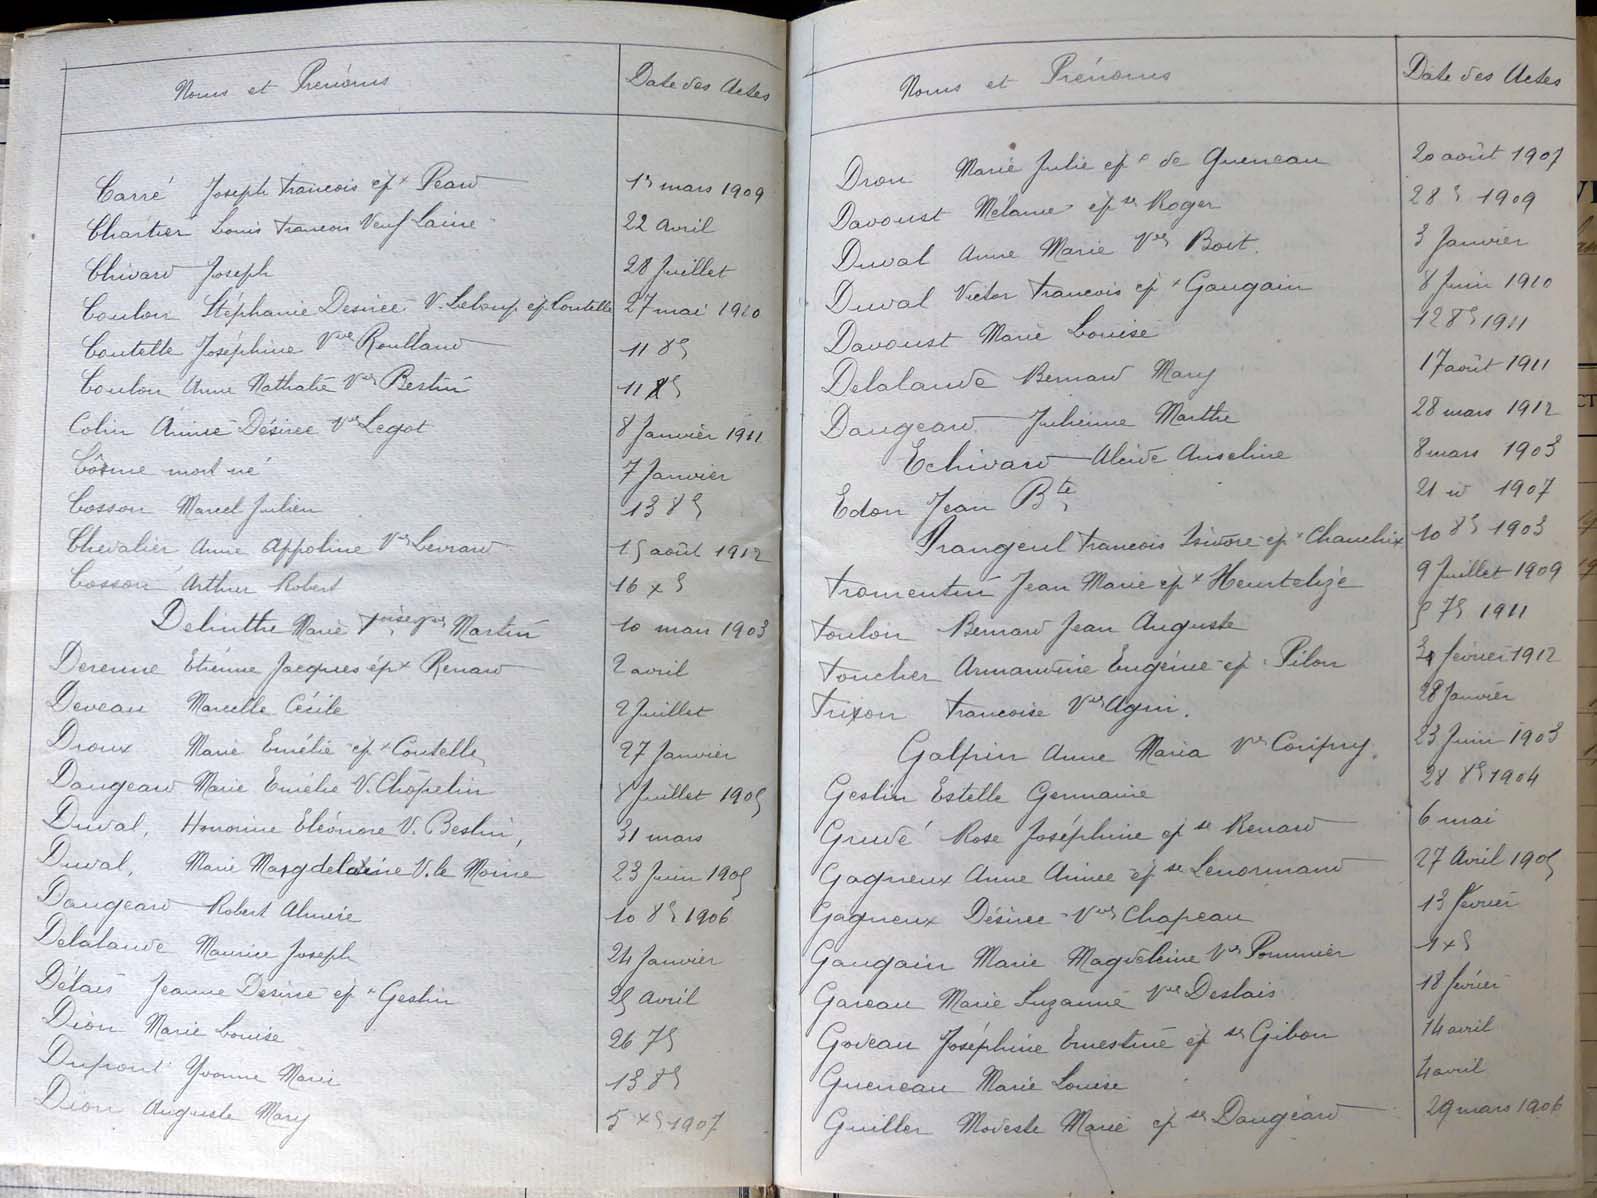 Noms et Prénoms Date des Actes
Carré Joseph Francois épx Peard 15 mars 1909
Chartier Louis Francois Veuf Lainé 22 Avril
Chivard Joseph 28 Juillet
Coulon Stéphanie Desiree V. Leloup ep. Coutelle 27 mai 1910
Coutelle Joséphine Vve Roulland 11 8e
Coulon Anne Nathalie Vve Bestin 11
Colin Aimée Désirée Vve Legot 8 Janvier 1911
Côsme mort né 7 Janvier
Cosson Marcel Julien 13 8e
Chevalier Anne Appoline Vve Levrard 15 août 1912
Cosson Arthur Robert 16 xe
Delinthe Marie Fçoise Vve Martin 10 mars 1903
Derenne Etienne Jacques épx Renard 2 avril
Deveau Marcelle Cécile 2 Juillet
Droux Marie Emélie épx Coutelle 27 Janvier
Daugeard Marie Emélie V. Chapelin 8 Juillet 1905
Duval, Honorine Eléonore V. Beslin, 31 mars
Duval, Marie Magdeleine V. le Moine 23 Juin 1905
Daugeard Robert Almire 10 8e 1906
Delalande Maurice Joseph 24 Janvier
Délais Jeanne Desiree ép Geslin 25 Avril
Dion Marie Louise 26 7e
Dupont Yvonne Marie 13 8e
Dion Auguste Mary 5 xe 1907
Noms et Prénoms Date des Actes
Dron Marie Julie épe de Gueneau 20 août 1907
Davoust Mélanie épse Roger 28 1909
Duval Anne Marie Vve Boit. 3 Janvier
Duval Victor Francois épx Gaugain 8 Juin 1910
Davoust Marie Louise 12 8e 1911
Delalande Bernard Mary 17 août 1911
Daugeard Julienne Marthe 28 mars 1912
Echivard Alcide Anselme 8 mars 1903
Edon Jean Bte 21 id 1907
Francois Isidore épx 10 8e 1903
Fromentin Jean Marie épx Heurtelize 9 Juillet 1909
Foulon Bernard Jean Auguste 5 7e 1911
Foucher Armandine Eugénie ép. Pilon février 1912
Frixon Francoise Vve Agin. 28 Janvier
Galpin Anne Maria Vve 23 Juin 1903
Geslin Estelle Germaine 28 8e 1904
Grudé Rose Joséphine épse Renard 6 mai
Gagneux Anne Aimee épse Lenormand 27 Avril 1905
Gagneux Désiree Vve Chapeau 13 février
Gaugain Marie Magdeleine Vve Pommier 1 xe
Gareau Marie Suzanne Vve Deslais 18 février
Godeau Joséphine Ernestine épse Gibon 14 avril
Gueneau Marie Louise 4 avril
Guiller Modeste Marie épse Daugeard 29 mars 1906